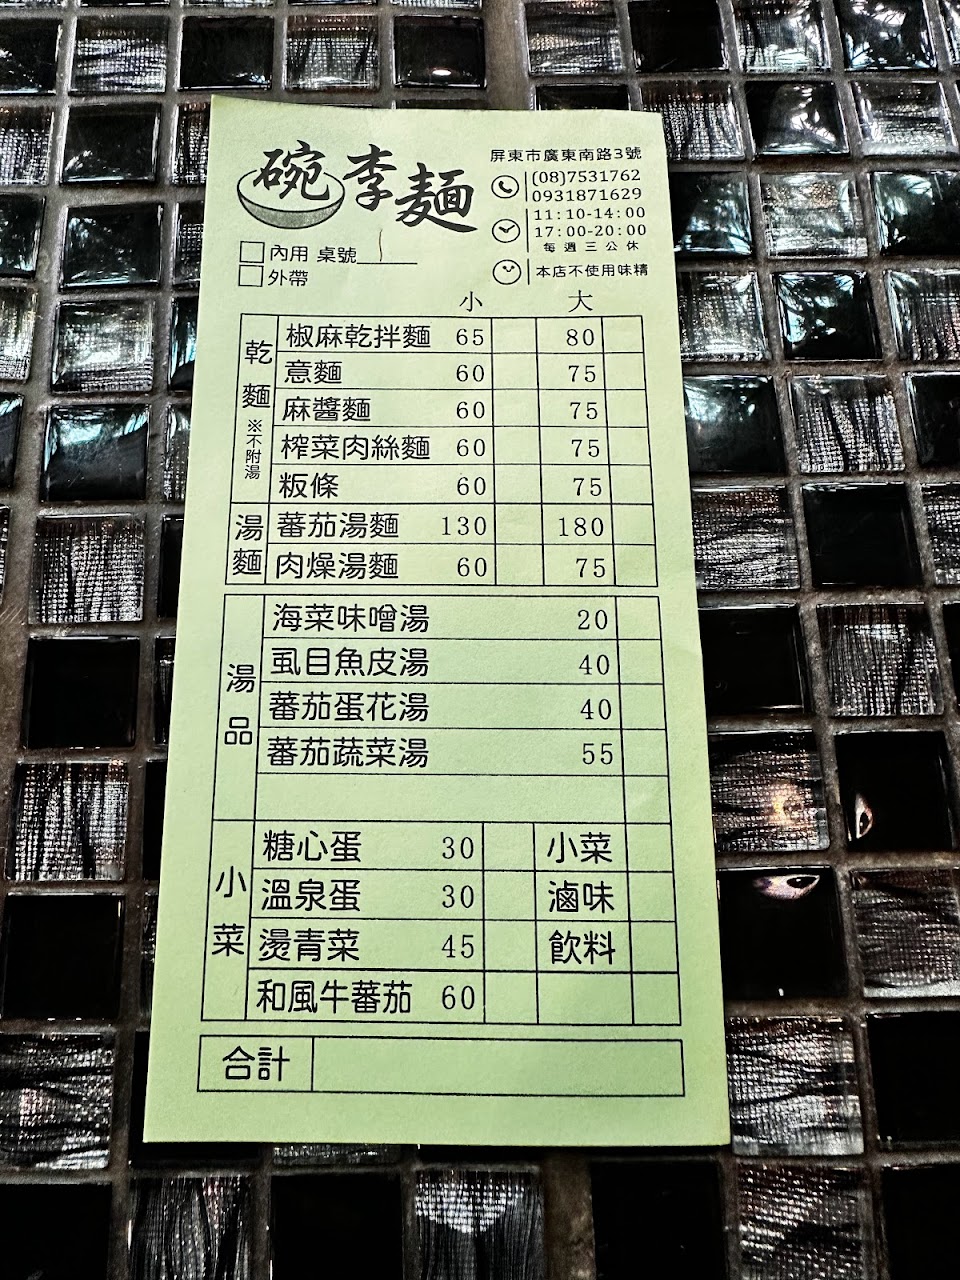 碗李麵
屏東市廣東南路3號
(08)7531762
0931871629
11:10-14:00
17:00-20:00
每週三公休
本店不使用味精
內用 桌號
外帶
小 大
乾麵 ※不附湯
椒麻乾拌麵 65 80
意麵 60 75
麻醬麵 60 75
榨菜肉絲麵 60 75
粄條 60 75
湯麵
蕃茄湯麵 130 180
肉燥湯麵 60 75
湯品
海菜味噌湯 20
虱目魚皮湯 40
蕃茄蛋花湯 40
蕃茄蔬菜湯 55
小菜
糖心蛋 30 小菜
溫泉蛋 30 滷味
燙青菜 45 飲料
和風牛蕃茄 60
合計